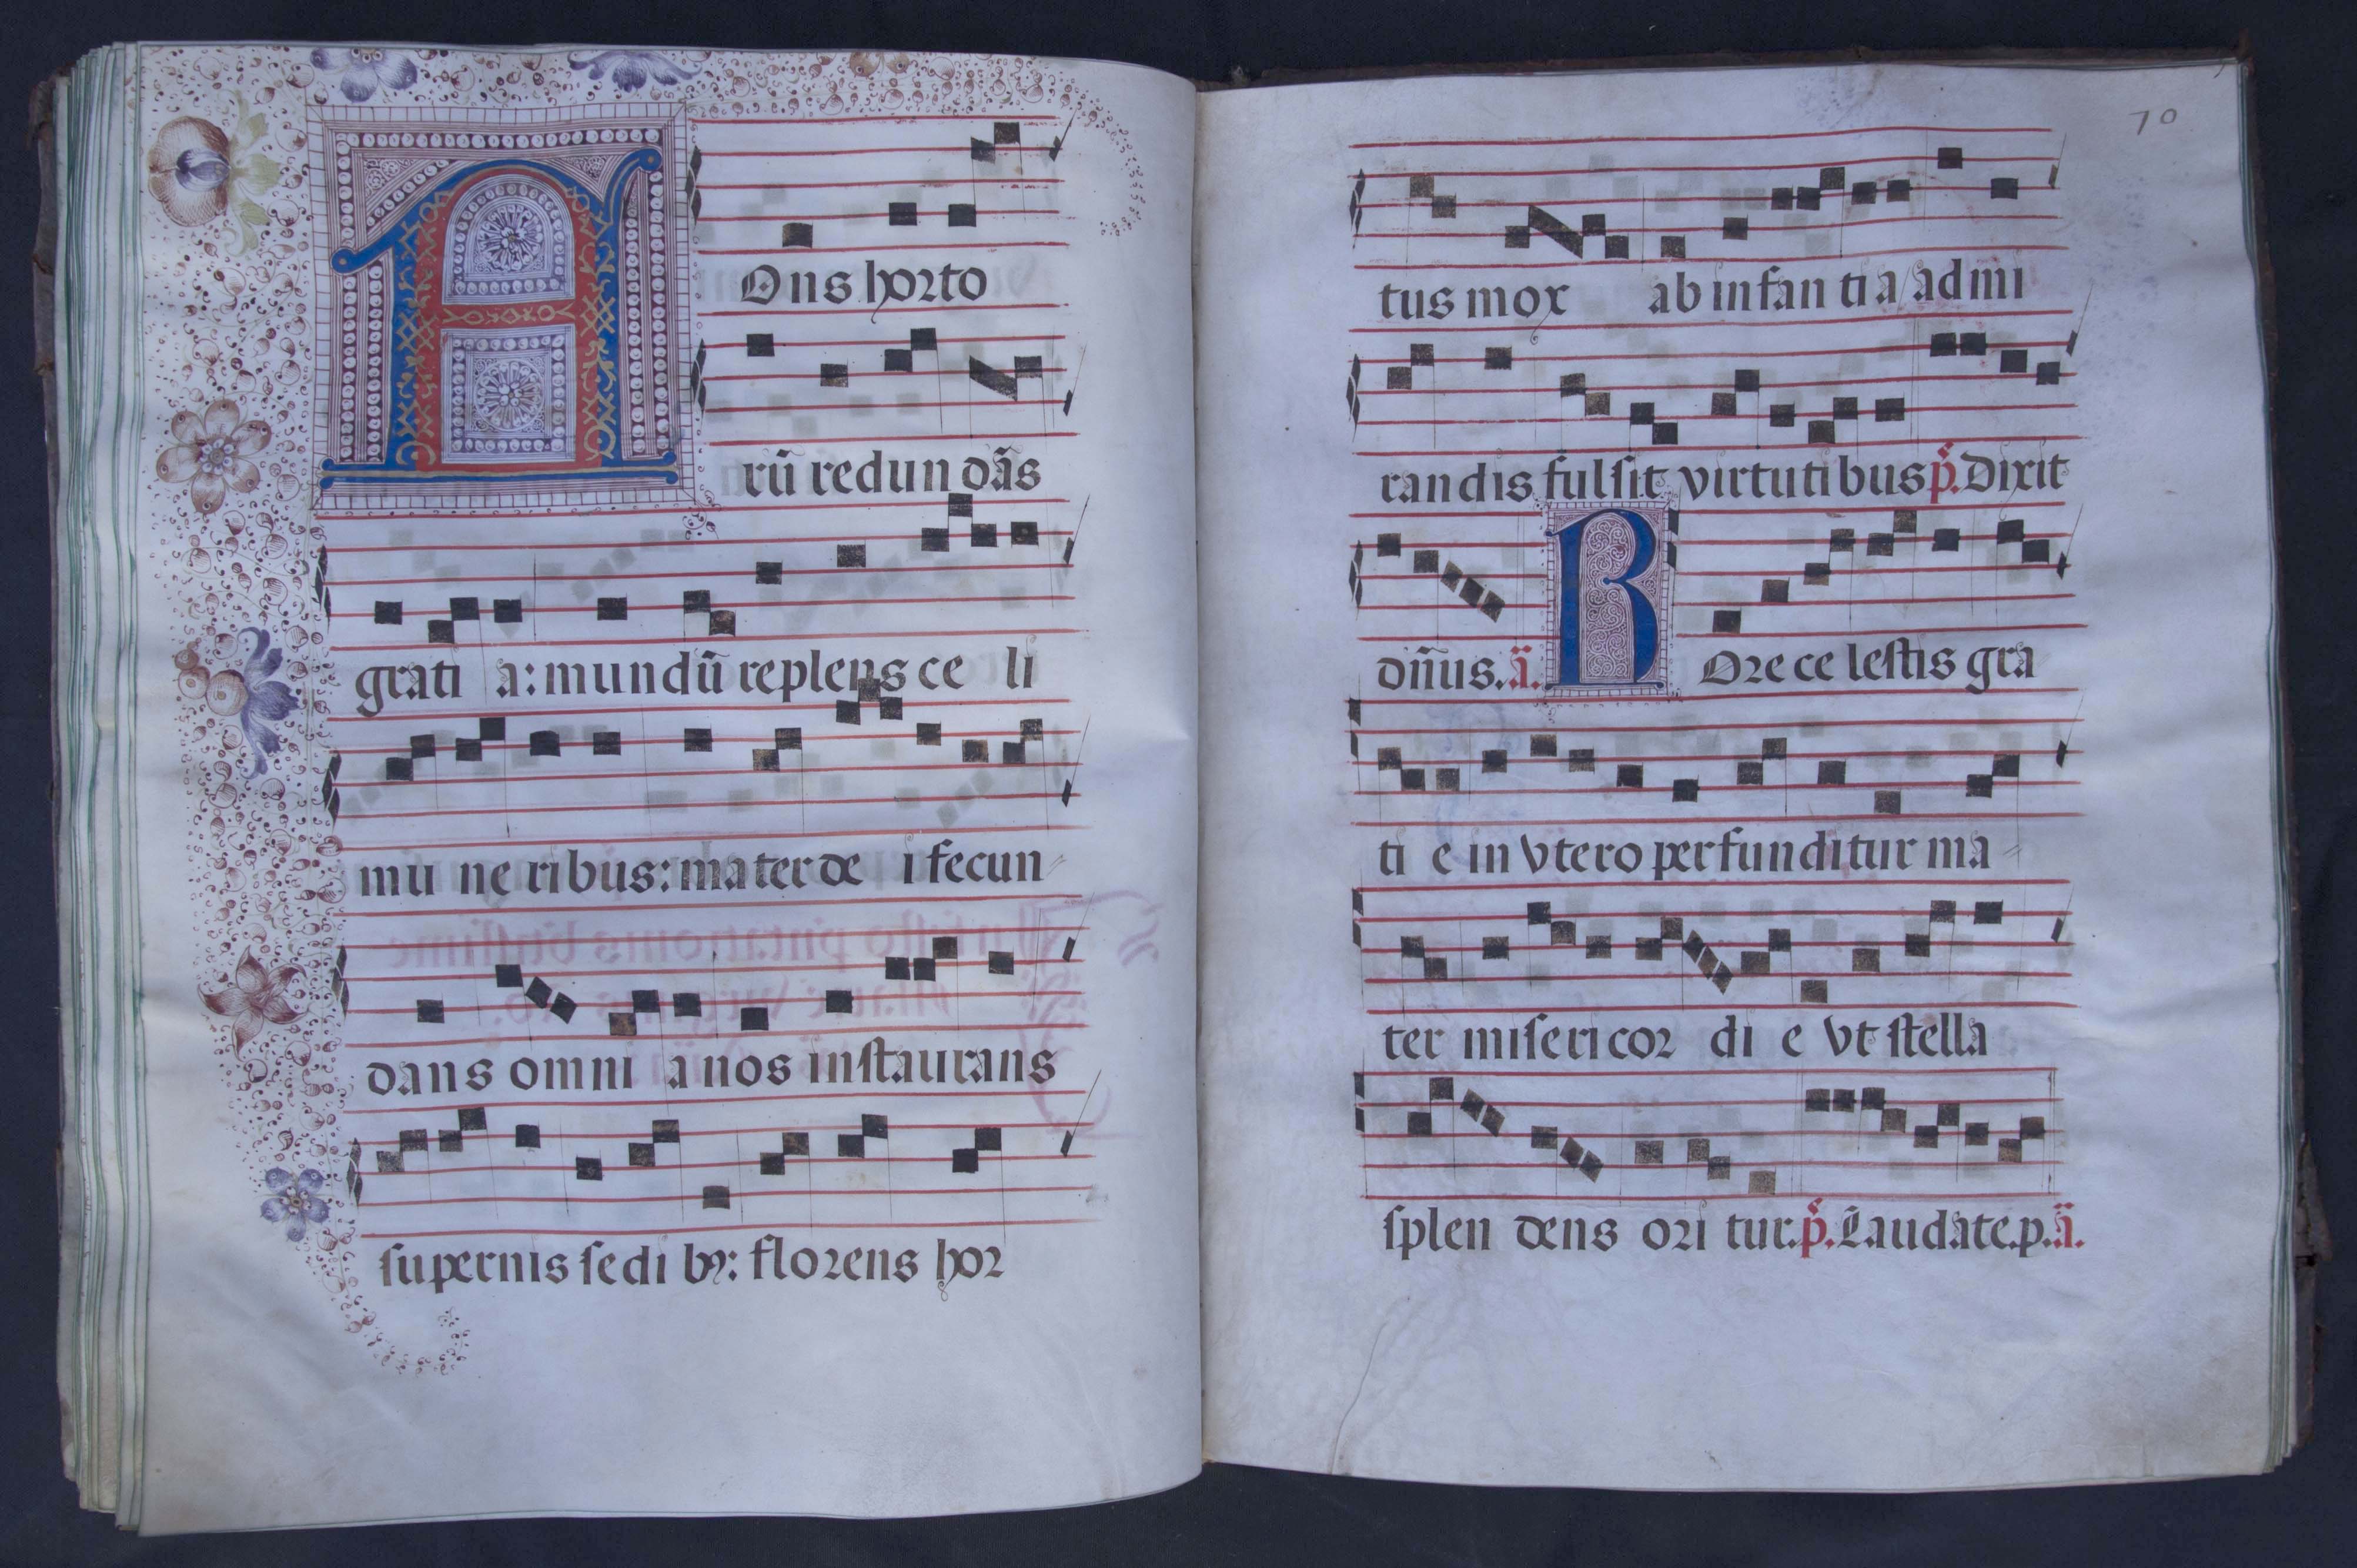 FOns horto
rũ redun dãs
grati a: mundũ replens ce li
mu ne ribus: mater de i fecun
dans omni a nos instaurans
supernis sedi bꝰ: florens hor
70
tus mox ab infan ti a / ad mi
randis fulsit virtutibus p̃. Dixit
dñus. ã. ROre ce lestis gra
ti e in vtero perfunditur ma
ter misericor di e vt stella
splen dens ori tur. p̃. Laudate. p. ã.